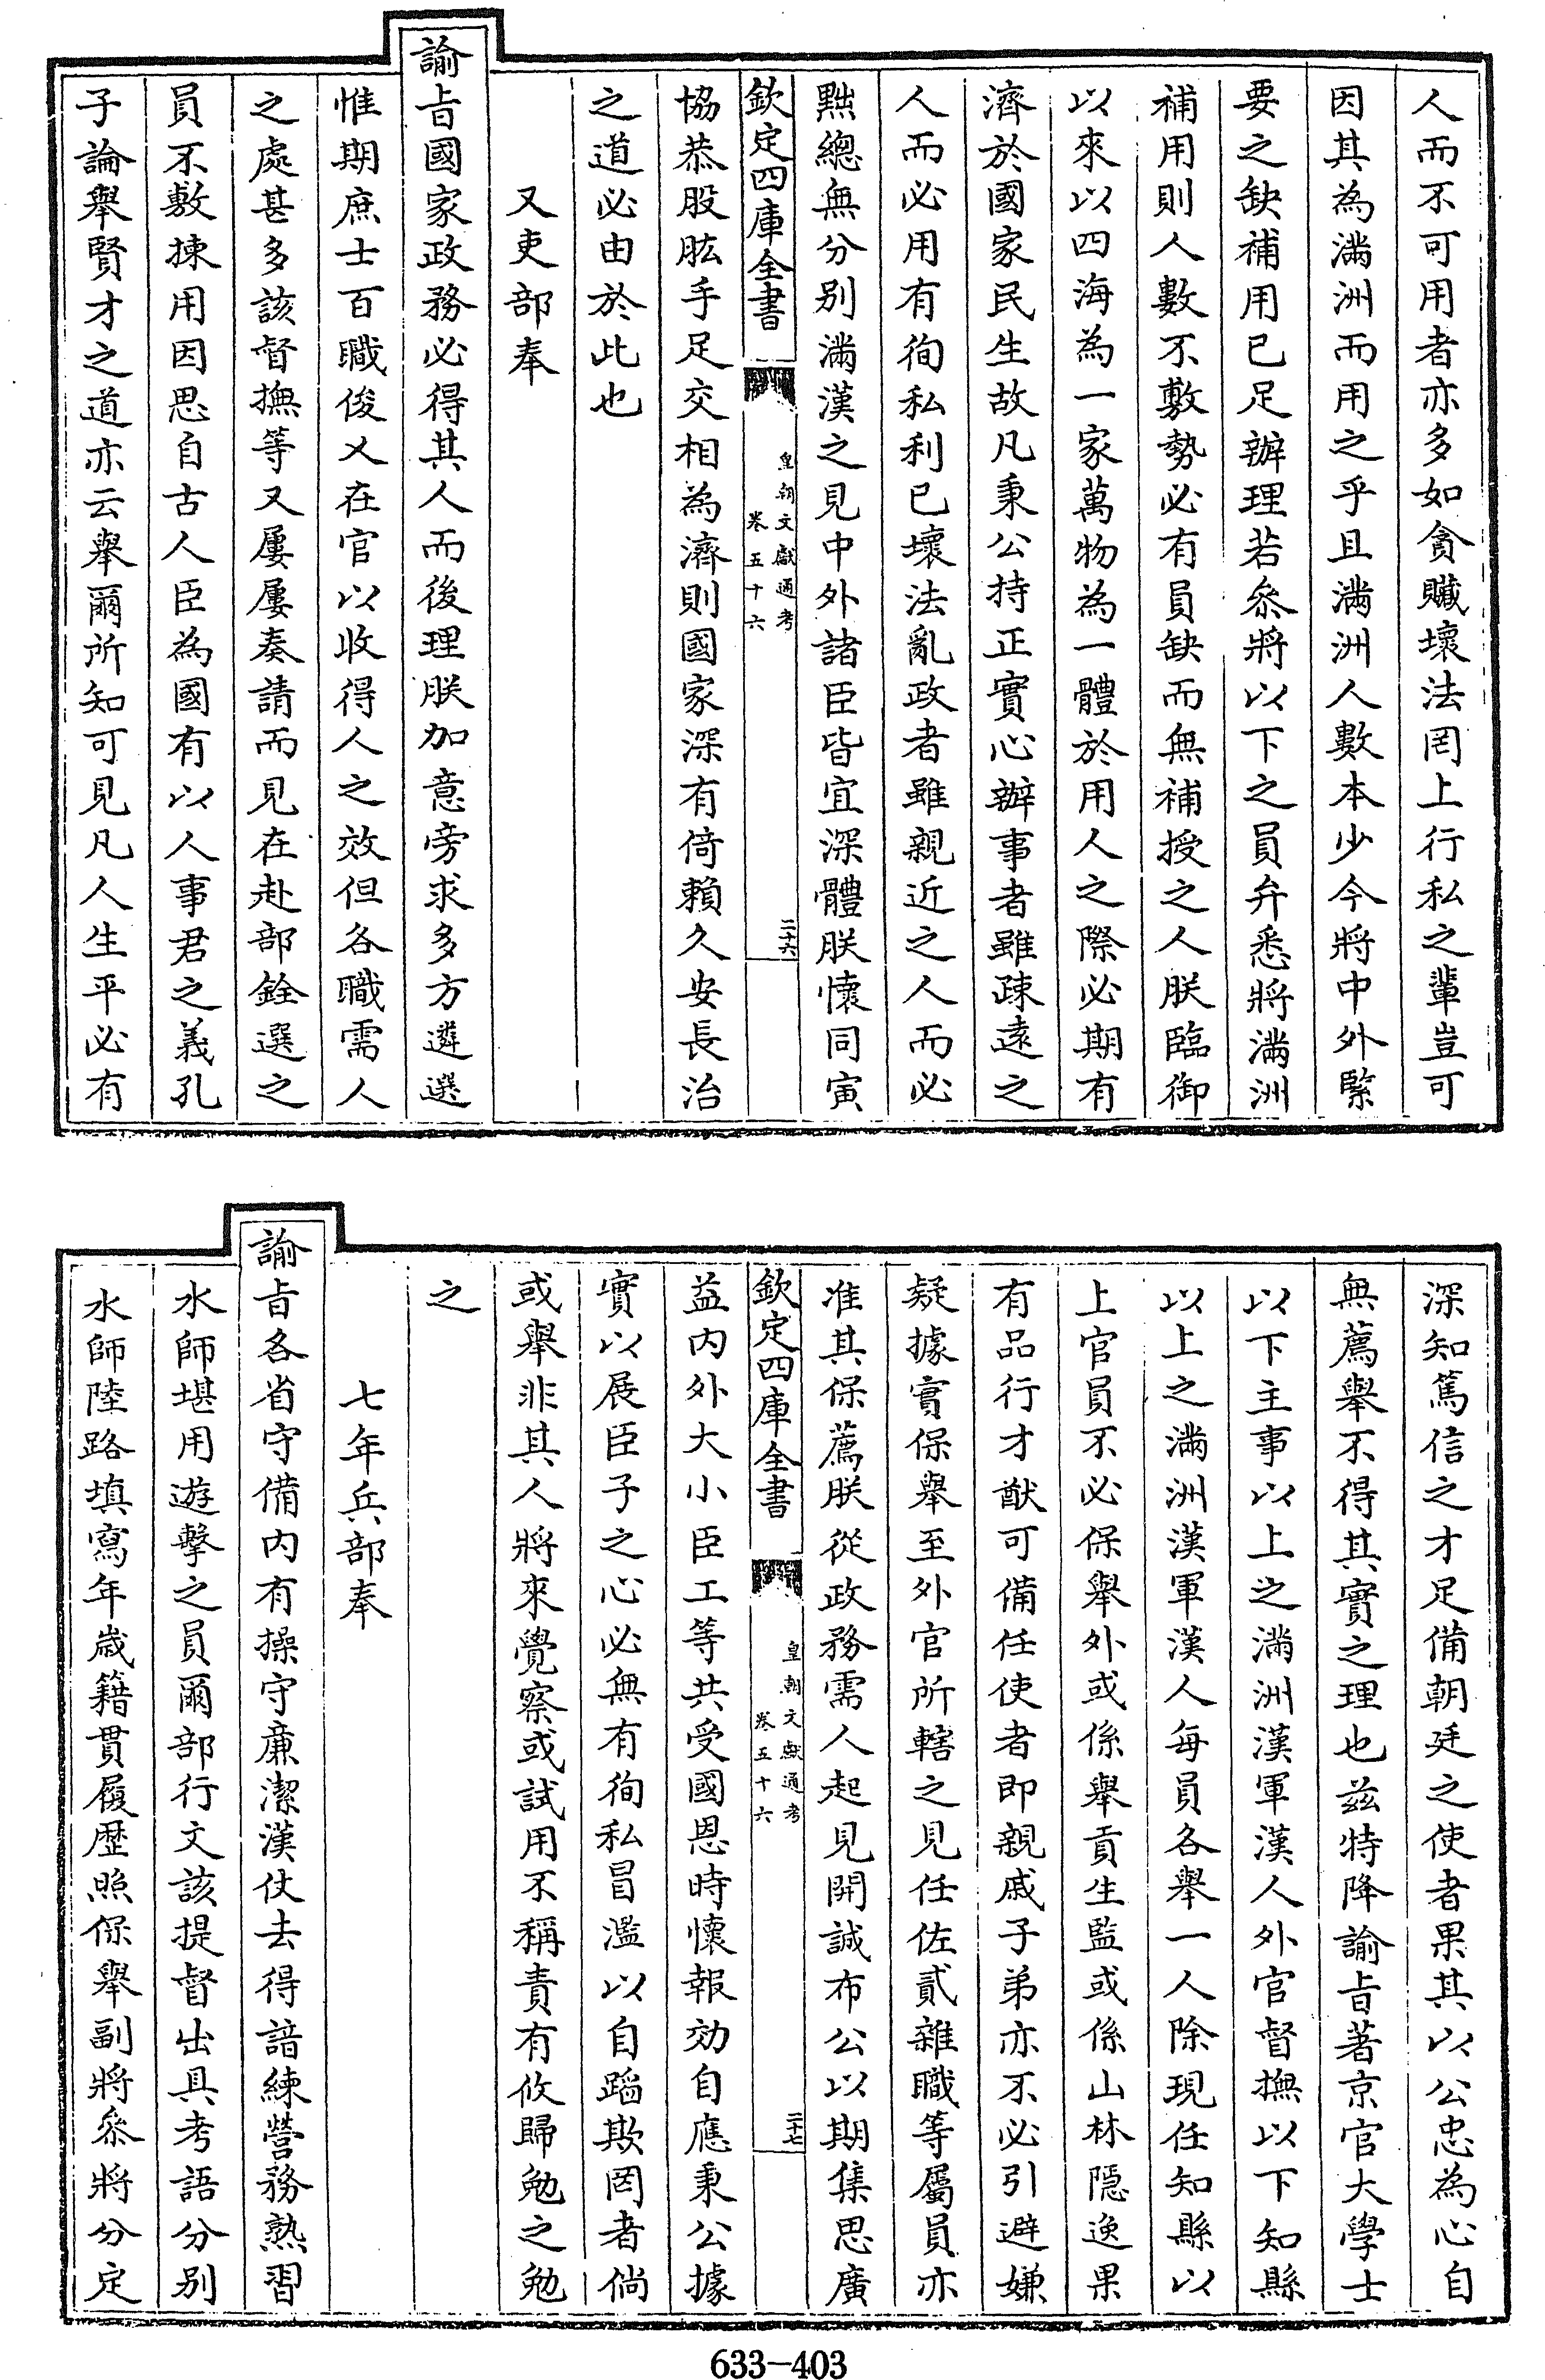 人而不可用者亦多如貪贜壞法罔上行私之輩豈可
因其為滿洲而用之乎且滿洲人數本少今將中外緊
要之缺補用已足辦理若叅將以下之員弁悉將滿洲
補用則人數不敷勢必有員缺而無補授之人朕臨御
以來以四海為一家萬物為一體於用人之際必期有
濟於國家民生故凡秉公持正實心辦事者雖疎逺之
人而必用有徇私利已壞法亂政者雖親近之人而必
黜總無分别滿漢之見中外諸臣皆宜深體朕懷同寅
欽定四庫全書
皇朝文獻通考
卷五十六
二十六
協恭股肱手足交相為濟則國家深有倚賴久安長治
之道必由於此也
又吏部奉
諭㫖國家政務必得其人而後理朕加意旁求多方遴選
惟期庶士百職俊乂在官以收得人之效但各職需人
之處甚多該督撫等又屢屢奏請而見在赴部銓選之
員不敷揀用因思自古人臣為國有以人事君之義孔
子論舉賢才之道亦云舉爾所知可見凡人生平必有
深知篤信之才足備朝廷之使者果其以公忠為心自
無薦舉不得其實之理也兹特降諭㫖著京官大學士
以下主事以上之滿洲漢軍漢人外官督撫以下知縣
以上之滿洲漢軍漢人每員各舉一人除現任知縣以
上官員不必保舉外或係舉貢生監或係山林隱逸果
有品行才猷可備任使者即親戚子弟亦不必引避嫌
疑據實保舉至外官所轄之見任佐貳雜職等屬員亦
准其保薦朕從政務需人起見開誠布公以期集思廣
欽定四庫全書
皇朝文獻通考
卷五十六
二十七
益内外大小臣工等共受國恩時懷報効自應秉公據
實以展臣子之心必無有徇私冒濫以自蹈欺罔者倘
或舉非其人將來覺察或試用不稱責有攸歸勉之勉
之
七年兵部奉
諭㫖各省守備内有操守亷潔漢仗去得諳練營務熟習
水師堪用遊擊之員爾部行文該提督出具考語分别
水師陸路填寫年嵗籍貫履歴照保舉副將叅將分定
633-403